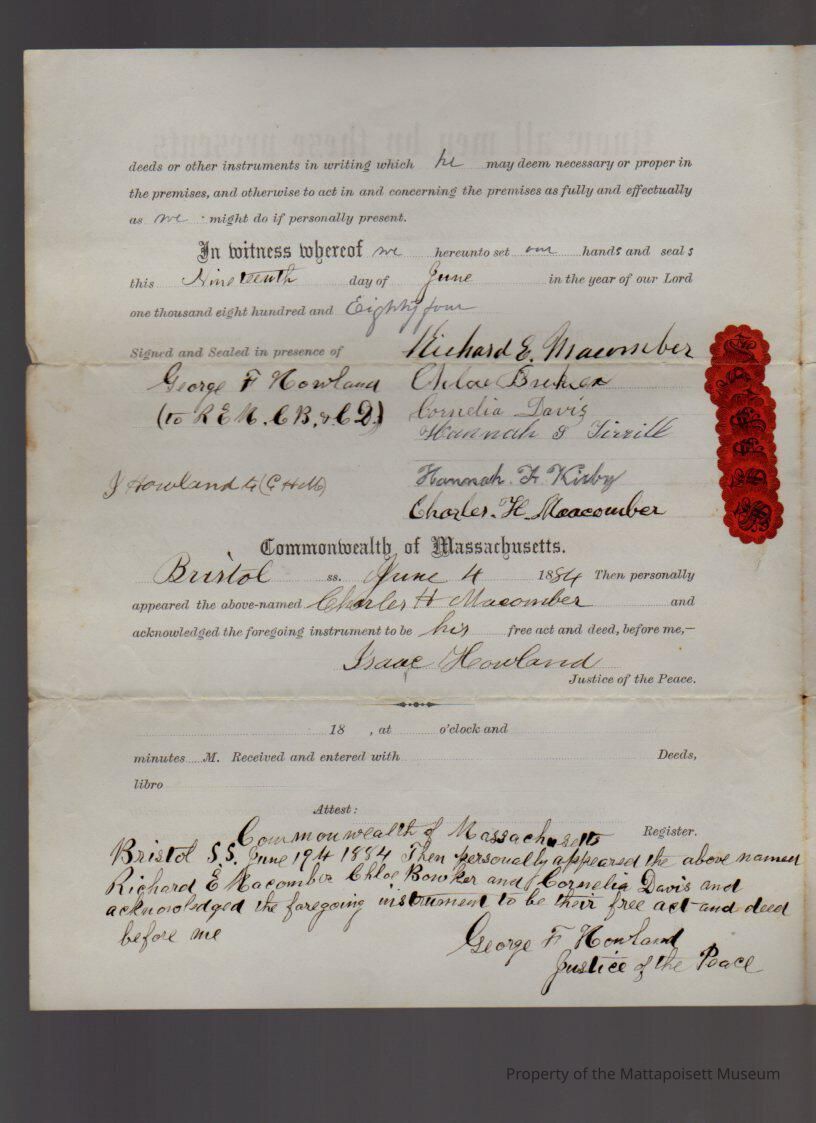 deeds or other instruments in writing which he may deem necessary or proper in
the premises, and otherwise to act in and concerning the premises as fully and effectually
as we might do if personally present.
In witness whereof we hereunto set our hands and seals
this Nineteenth day of June in the year of our Lord
one thousand eight hundred and Eighty four
Signed and Sealed in presence of Richard E. Macomber
George F Howland Chloe
(to R E M. C B. & C D.) Cornelia Davis
Hannah S Tirrill
J Howland to (C H M) Hannah. F. Kirby
Charles. H. Macomber
Commonwealth of Massachusetts.
Bristol ss. June 4 1884 Then personally
appeared the above-named Charles H Macomber and
acknowledged the foregoing instrument to be his free act and deed, before me,—
Isaac Howland
Justice of the Peace.
18 , at o'clock and
minutes M. Received and entered with Deeds,
libro
Attest:
Register.
Commonwealth of Massachusetts
Bristol S.S. June 19th 1884 Then personally appeared the above named
Richard E Macomber Chloe Bowker and Cornelia Davis and
acknowledged the foregoing instrument to be their free act and deed
before me
George F Howland
Justice of the Peace
Property of the Mattapoisett Museum